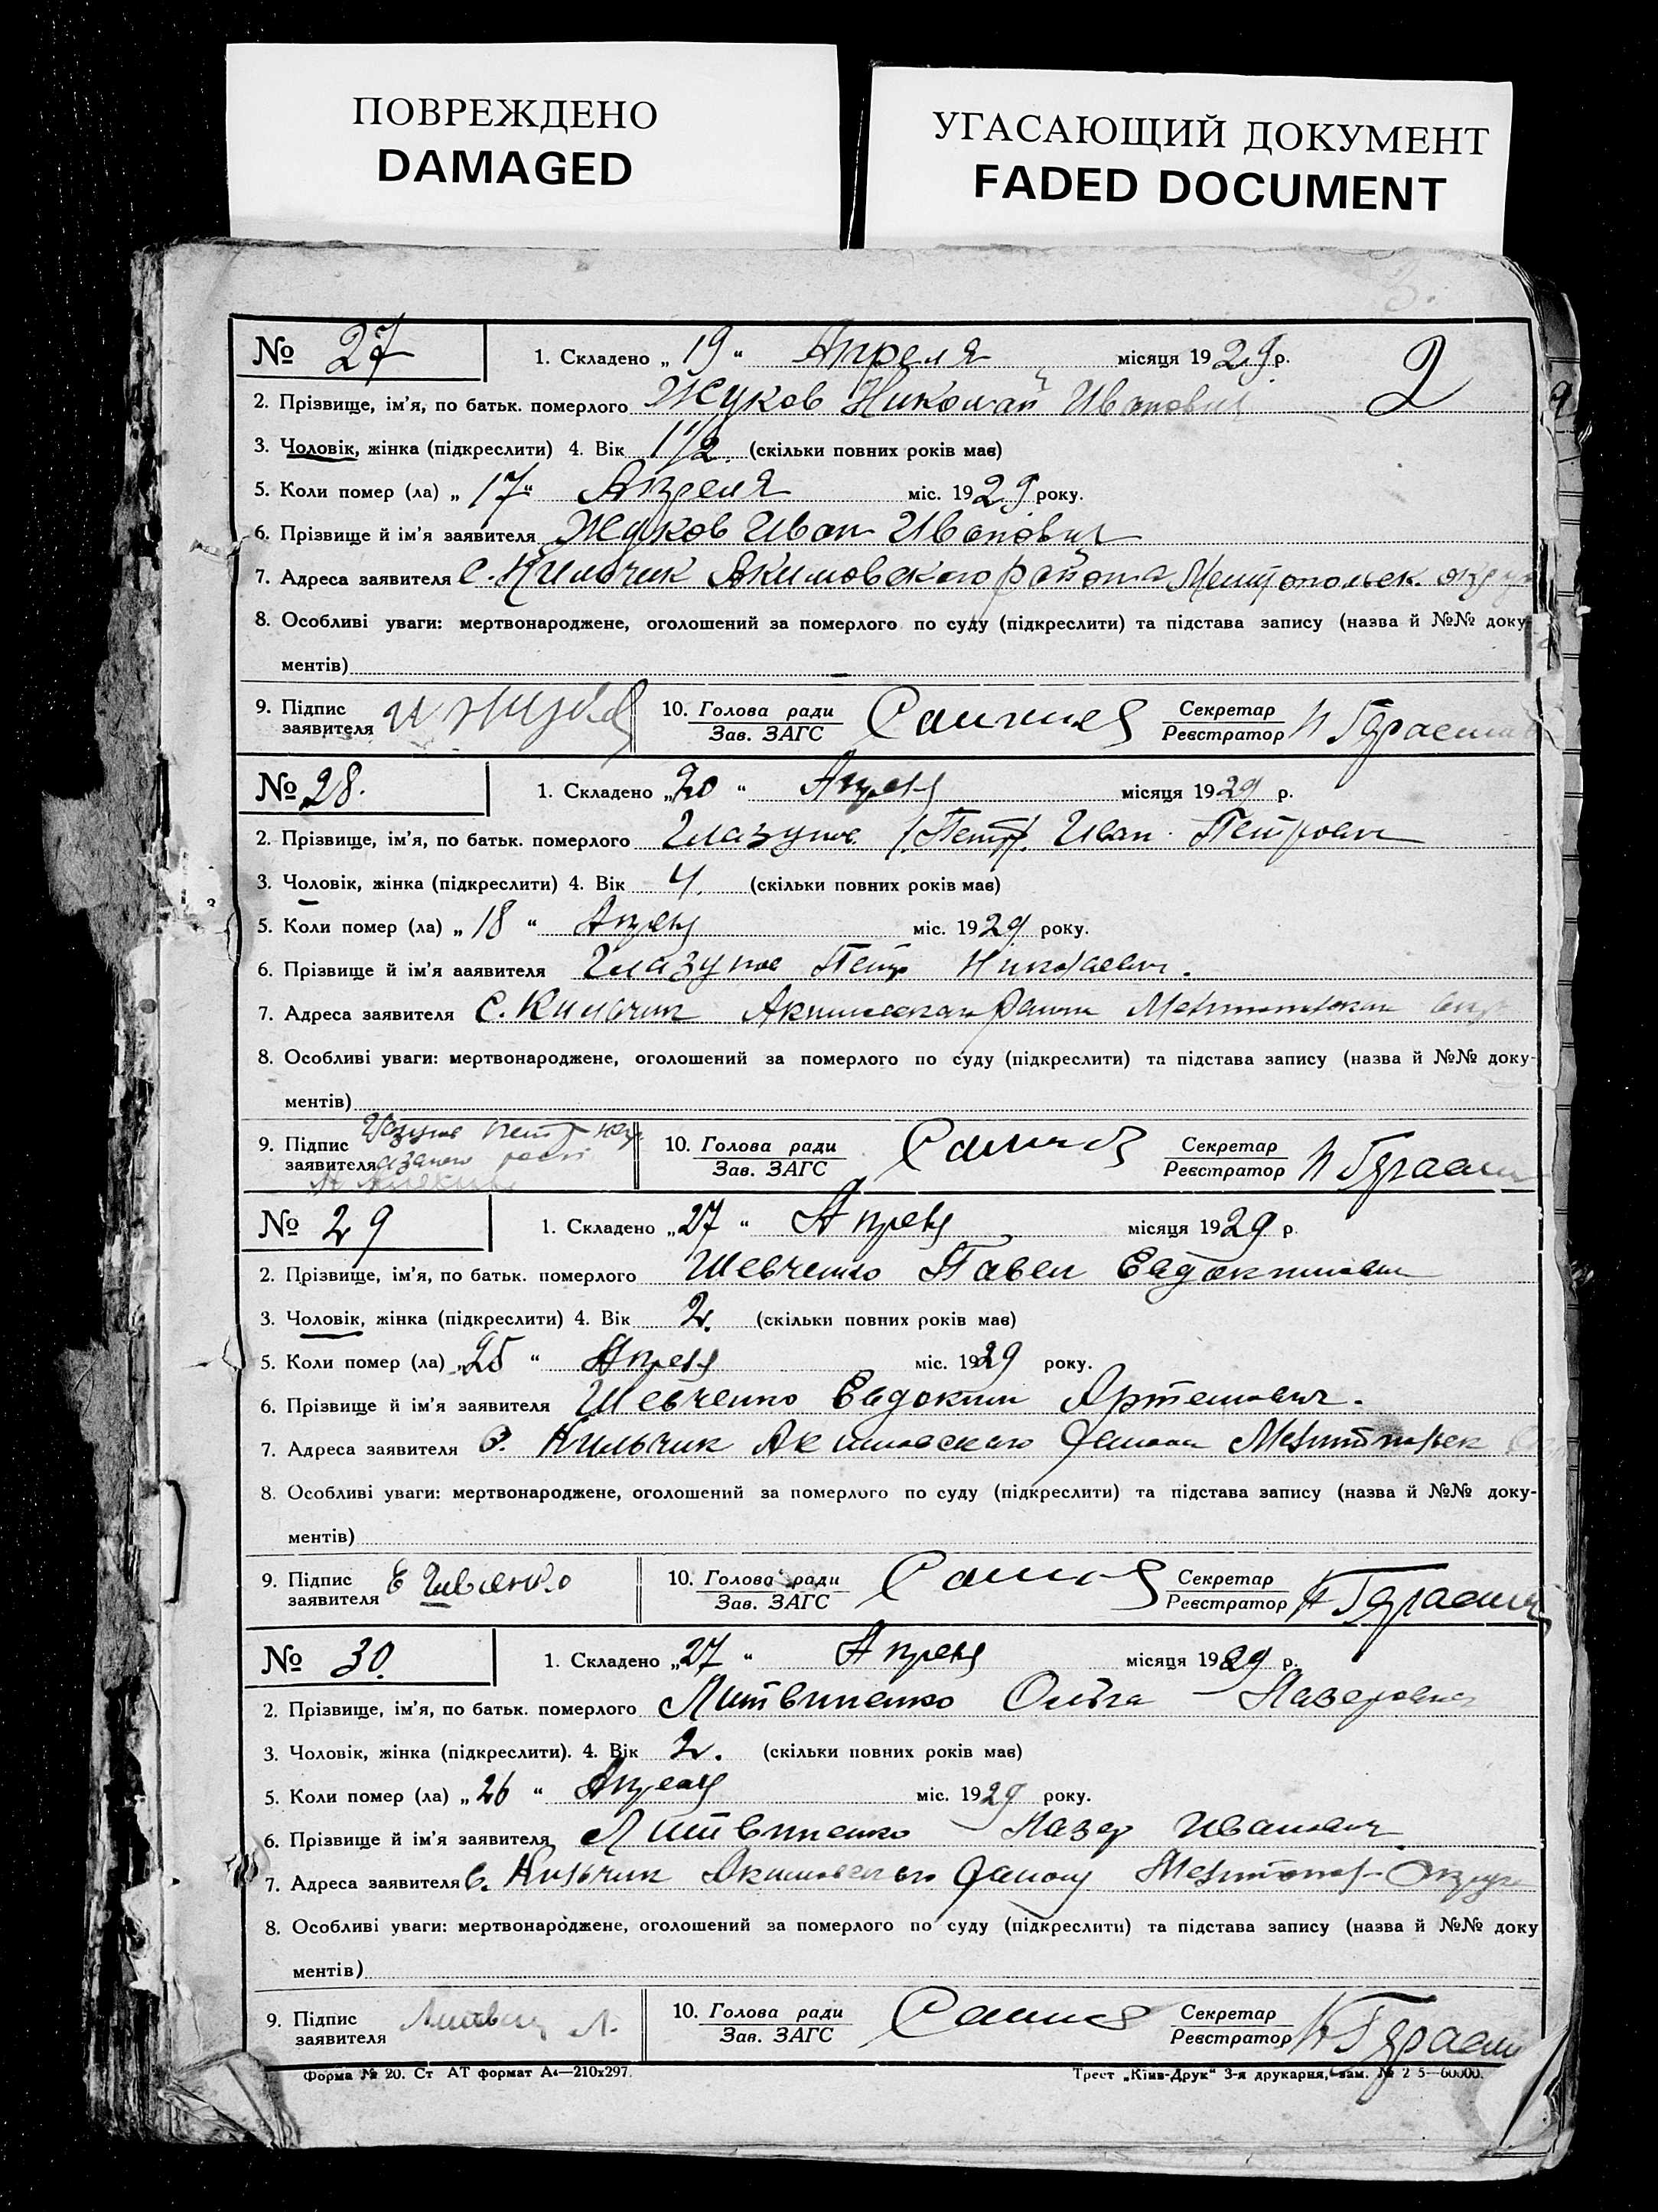 ПОВРЕЖДЕНО
DAMAGED
УГАСАЮЩИЙ ДОКУМЕНТ
FADED DOCUMENT
№ 27 1. Складено „ 19 “ Апреля місяця 1929 р. 2
2. Прізвище, ім'я, по батьк. померлого Жуков Николай Иванович
3. Чоловік, жінка (підкреслити) 4. Вік 1 1/2. (скільки повних років має)
5. Коли помер (ла) „ 17 “ Апреля міс. 1929 року.
6. Прізвище й ім'я заявителя Жуков Иван Иванович
7. Адреса заявителя С. Кильчик Акимовского района Мелитопольск. округа
8. Особливі уваги: мертвонароджене, оголошений за померлого по суду (підкреслити) та підстава запису (назва й №№ доку-
ментів)
9. Підпис заявителя И Жуков 10. Голова ради Зав. ЗАГС Секретар Реєстратор
№ 28. 1. Складено „ 20 “ Апреля місяця 1929 р.
2. Прізвище, ім'я, по батьк. померлого Глазунов /Петр/. Иван Петрович
3. Чоловік, жінка (підкреслити) 4. Вік 4. (скільки повних років має)
5. Коли помер (ла) „ 18 “ Апреля міс. 1929 року.
6. Прізвище й ім'я заявителя Глазунов Петр Николаевич.
7. Адреса заявителя С. Кильчик Акимовского района Мелитопольского
8. Особливі уваги: мертвонароджене, оголошений за померлого по суду (підкреслити) та підстава запису (назва й №№ доку-
ментів)
9. Підпис заявителя Глазунов Петр 10. Голова ради Зав. ЗАГС Секретар Реєстратор
№ 29 1. Складено „ 27 “ Апреля місяця 1929 р.
2. Прізвище, ім'я, по батьк. померлого Шевченко Павел Евдокимович
3. Чоловік, жінка (підкреслити) 4. Вік 2. (скільки повних років має)
5. Коли помер (ла) „ 25 “ Апреля міс. 1929 року.
6. Прізвище й ім'я заявителя Шевченко Евдоким Артемович.
7. Адреса заявителя С. Кильчик Акимовского района Мелитопольск
8. Особливі уваги: мертвонароджене, оголошений за померлого по суду (підкреслити) та підстава запису (назва й №№ доку-
ментів)
9. Підпис заявителя Е Шевченко 10. Голова ради Зав. ЗАГС Секретар Реєстратор
№ 30. 1. Складено „ 27 “ Апреля місяця 1929 р.
2. Прізвище, ім'я, по батьк. померлого Литвиненко Ольга Назаровна
3. Чоловік, жінка (підкреслити). 4. Вік 2. (скільки повних років має)
5. Коли помер (ла) „ 26 “ Апреля міс. 1929 року.
6. Прізвище й ім'я заявителя Литвиненко Назар Иванович
7. Адреса заявителя С. Кильчик Акимовского района Мелитопол. Округа
8. Особливі уваги: мертвонароджене, оголошений за померлого по суду (підкреслити) та підстава запису (назва й №№ доку
ментів)
9. Підпис заявителя 10. Голова ради Зав. ЗАГС Секретар Реєстратор
Форма № 20. Ст АТ формат А4—210x297. Трест „Київ-Друк“ 3-я друкарня, зам. № 2 5—60000.